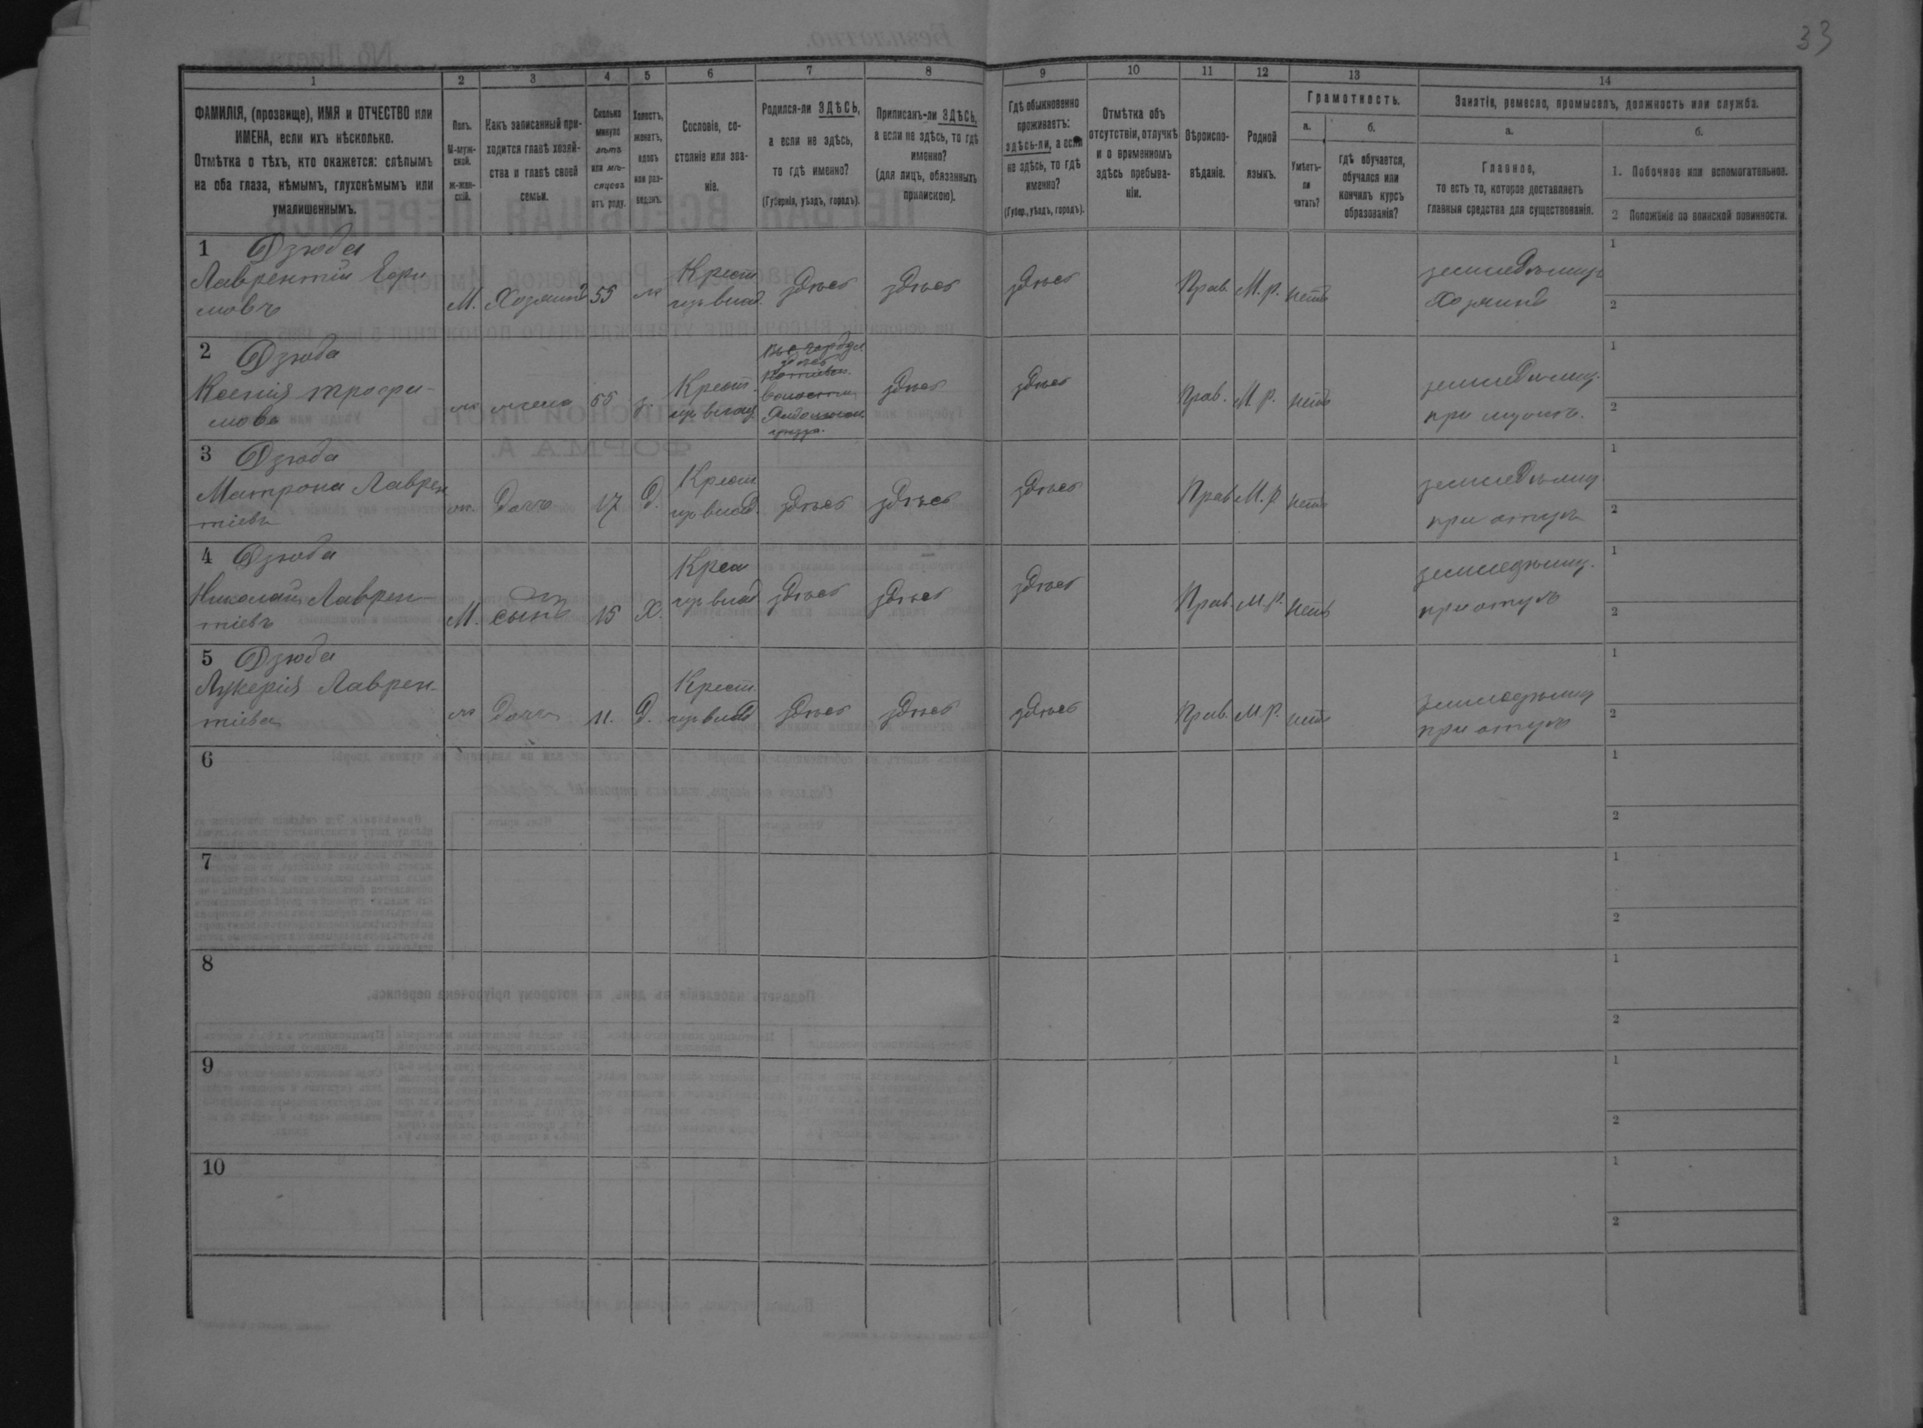 33
1 2 3 4 5 6 7 8 9 10 11 12 13 14
ФАМИЛІЯ, (прозвище), ИМЯ и ОТЧЕСТВО или
ИМЕНА, если ихъ нѣсколько.
Отмѣтка о тѣхъ, кто окажется: слѣпымъ
на оба глаза, нѣмымъ, глухонѣмымъ или
умалишеннымъ.
Полъ.
М-муж-
ской.
ж-жен-
скій.
Какъ записанный при-
ходится главѣ хозяй-
ства и главѣ своей
семьи.
Сколько
минуло
лѣтъ
или мѣ-
сяцевъ
отъ роду.
Холостъ,
женатъ,
вдовъ
или раз-
веденъ.
Сословіе, со-
стояніе или зва-
ніе.
Родился-ли ЗДѢСЬ,
а если не здѣсь,
то гдѣ именно?
(Губернія, уѣздъ, городъ).
Приписанъ-ли ЗДѢСЬ,
а если не здѣсь, то гдѣ
именно?
(для лицъ, обязанныхъ
припискою).
Гдѣ обыкновенно
проживаетъ:
здѣсь-ли, а если
не здѣсь, то гдѣ
именно?
(Губер., уѣздъ, городъ).
Отмѣтка объ
отсутствіи, отлучкѣ
и о временномъ
здѣсь пребыва-
ніи.
Вѣроиспо-
вѣданіе.
Родной
языкъ.
Грамотность.
а.
Умѣетъ-
ли
читать?
б.
гдѣ обучается,
обучался или
кончилъ курсъ
образованія?
Занятіе, ремесло, промыселъ, должность или служба.
а.
Главное,
то есть то, которое доставляетъ
главныя средства для существованія.
б.
1. Побочное или вспомогательное.
2 Положеніе по воинской повинности.
1 Дзюба
Лаврентій
М. Хозяинъ 55 ж Крест. здѣсь здѣсь здѣсь Прав. М.р. нетъ
Хозяинъ
1
2
2 Дзюба
Ксенія Трофи-
мова
ж жена 55 Крест. здѣсь здѣсь Прав. М.р. нетъ
при мужѣ
1
2
3 Дзюба
Матрона Лаврен
тіевъ
ж. Дочь 17 Д. Крест здѣсь здѣсь здѣсь Прав М.р нетъ
при отцѣ
1
2
4 Дзюба
Николай Лаврен-
тіевъ
М. сынъ 15 Х. Крест здѣсь здѣсь здѣсь Прав. М.р. нетъ
при отцѣ
1
2
5 Дзюба
Лукерія Лаврен-
тіева
ж Дочь 11. Д. Крест. здѣсь здѣсь здѣсь Прав. М.р. нетъ
при отцѣ
1
2
6
1
2
7
1
2
8
1
2
9
1
2
10
1
2